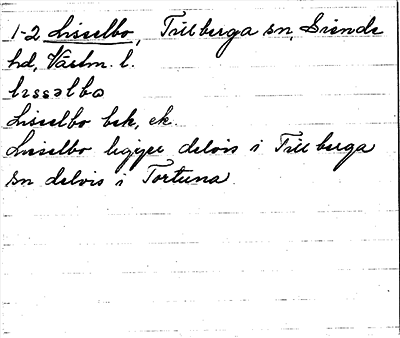 1-2 Lisselbo, Tillberga sn, Siende
hd, Västm. l.
lɪssəlbɷ
Lisselbo bek, ek.
Lisselbo ligger delvis i Tillberga
sn delvis i Tortuna.